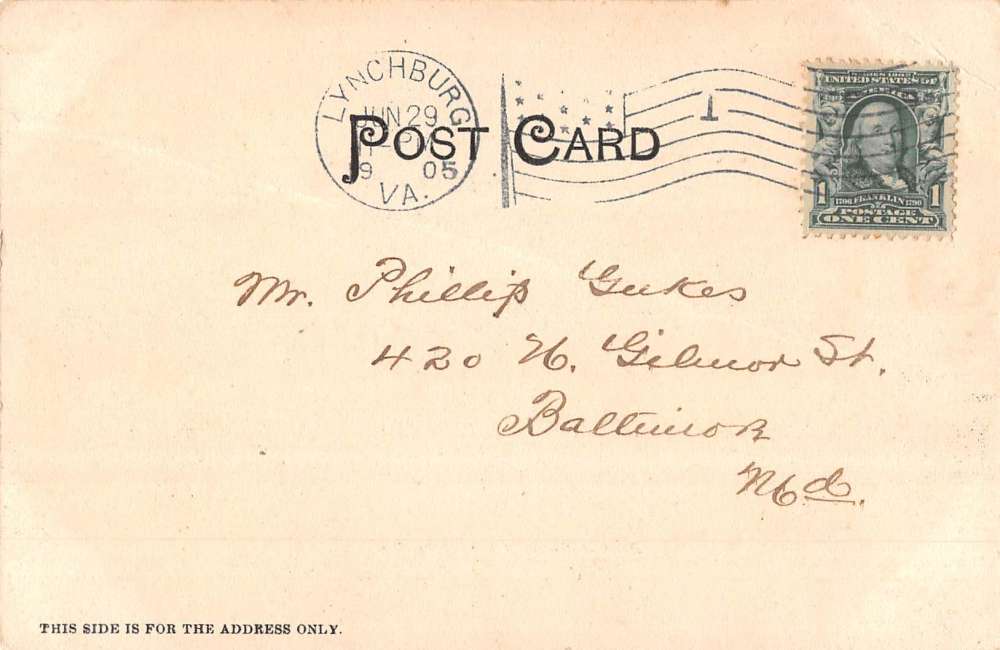 LYNCHBURG
JUN 29
9 05
VA.
1
POST CARD
SERIES 1902
UNITED STATES OF
AMERICA
1 1
1706 FRANKLIN 1790
POSTAGE
ONE CENT
Mr. Phillip Gukes
420 N. Gilmor St.
Baltimore
Md.
THIS SIDE IS FOR THE ADDRESS ONLY.